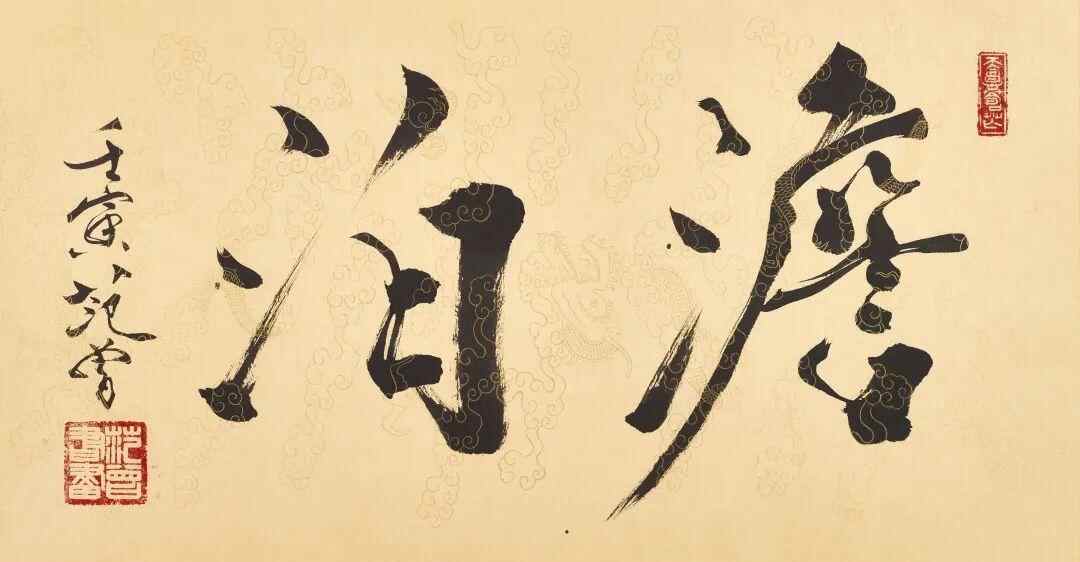 澹泊
壬寅范曾
范曾
書畫